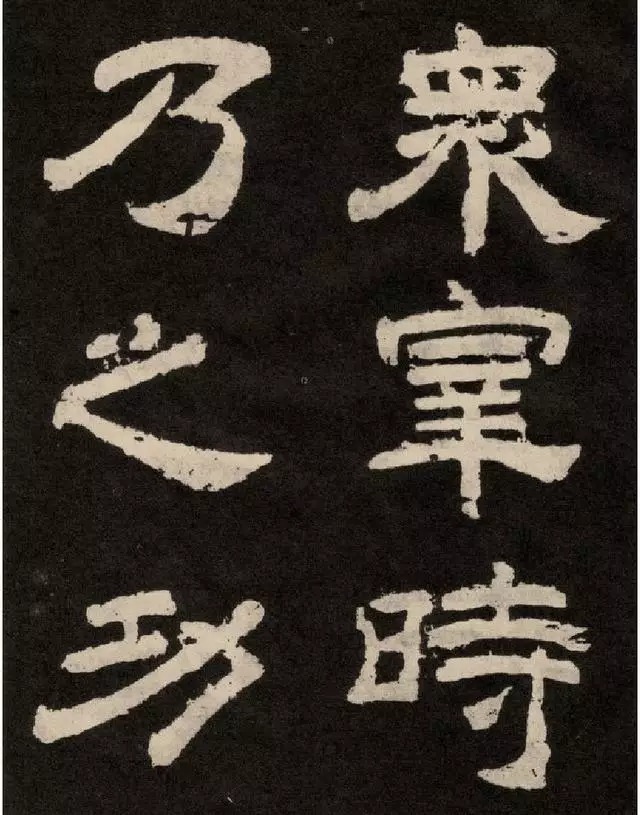 衆宰時
乃之功